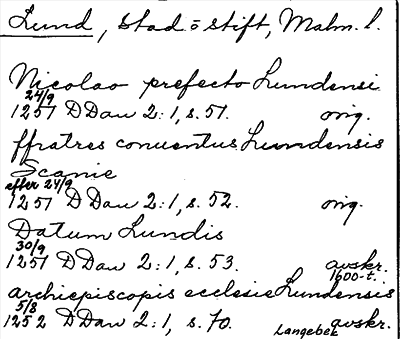 Lund, stad o stift, Malm. l.
Nicolao prefecto Lundensi
24/9
1251 DDan 2:1, s. 51. orig.
ffratres conuentus Lundensis
Scanie
efter 24/9
1251 DDan 2:1, s. 52. orig.
Datum Lundis
30/9
1251 DDan 2:1, s. 53. avskr.
1600-t.
archiepiscopis ecclesie Lundensis
5/8
1252 DDan 2:1, s. 70. Langebek avskr.